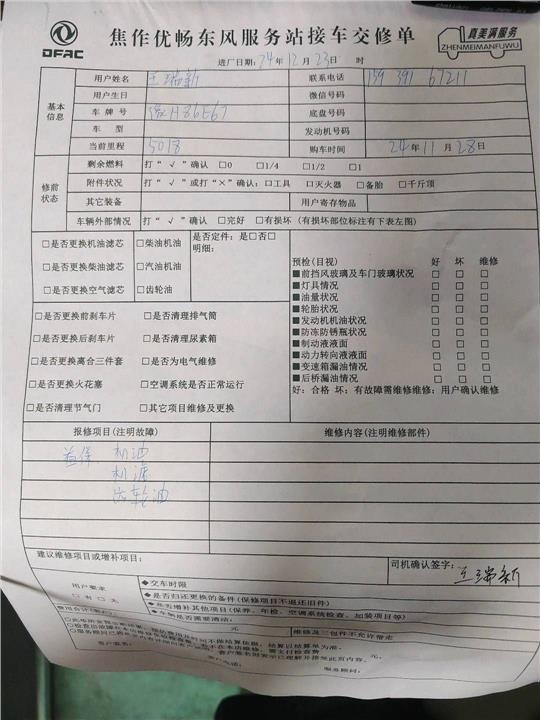 DFAC
焦作优畅东风服务站接车交修单
真美满服务
ZHENMEIMANFUWU
进厂日期: 24年12月23日
基本信息
用户姓名 王瑞新 联系电话 159 391 67211
用户生日 微信号码
车牌号 豫H86E67 底盘号码
车型 发动机号码
当前里程 5018 购车时间 24年11月28日
修前状态
剩余燃料 打“√”确认 □0 □1/4 □1/2 □1
附件状况 打“√”或打“×”确认:□工具 □灭火器 □备胎 □千斤顶
其它装备 用户寄存物品
车辆外部情况 打“√”确认 □完好 □有损坏(有损坏部位标注有下表左图)
□是否更换机油滤芯 □柴油机油 是否定件:是□否□
明细:
□是否更换柴油滤芯 □汽油机油
□是否更换空气滤芯 □齿轮油
预检(目视) 好 坏 维修
■前挡风玻璃及车门玻璃状况 □ □ □
■灯具情况 □ □ □
■油量状况 □ □ □
■轮胎情况 □ □ □
■发动机机油情况 □ □ □
■防冻防锈瓶状况 □ □ □
■制动液液面 □ □ □
■动力转向液液面 □ □ □
■变速箱漏油情况 □ □ □
■后桥漏油情况 □ □ □
好:合格 坏:有故障需维修维修:用户确认维修
□是否更换前刹车片 □是否清理排气筒
□是否更换后刹车片 □是否清理尿素箱
□是否更换离合三件套 □是否为电气维修
□是否更换火花塞 □空调系统是否正常运行
□是否清理节气门 □其它项目维修及更换
报修项目(注明故障) 维修内容(注明维修部件)
首保 机油
机滤
齿轮油
建议维修项目或增补项目:
司机确认签字: 王瑞新
用户要求
□有 □无
◆交车时限
◆是否归还更换的备件(保修项目不退还旧件)
◆是否增补其他项目(保养、年检、空调系统检查、加装项目等)
维修及三包件不允许带走
客户签名:
客户电话:
服务顾问: